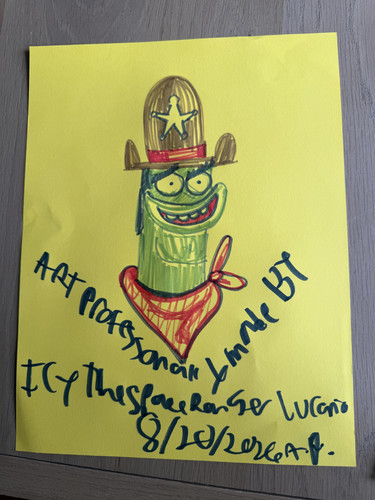 ART Professionally made BY
Icy The Space Ranger Lucario
8/20/2026 A.P.